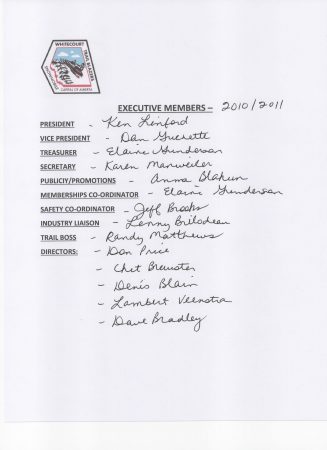 WHITECOURT
TRAIL BLAZERS
SNOWMOBILE
CAPITAL OF ALBERTA
EXECUTIVE MEMBERS – 2010/2011
PRESIDENT - Ken Linford
VICE PRESIDENT - Dan Guerette
TREASURER - Elaine Gunderson
SECRETARY - Karen Manweiler
PUBLICIY/PROMOTIONS - Anna
MEMBERSHIPS CO-ORDINATOR - Elaine Gunderson
SAFETY CO-ORDINATOR - Jeff Brooks
INDUSTRY LIAISON - Lenny Bilodeau
TRAIL BOSS - Randy Matthews
DIRECTORS: - Don Price
- Chet Brewster
- Denis Blain
- Lambert Veenstra
- Dave Bradley